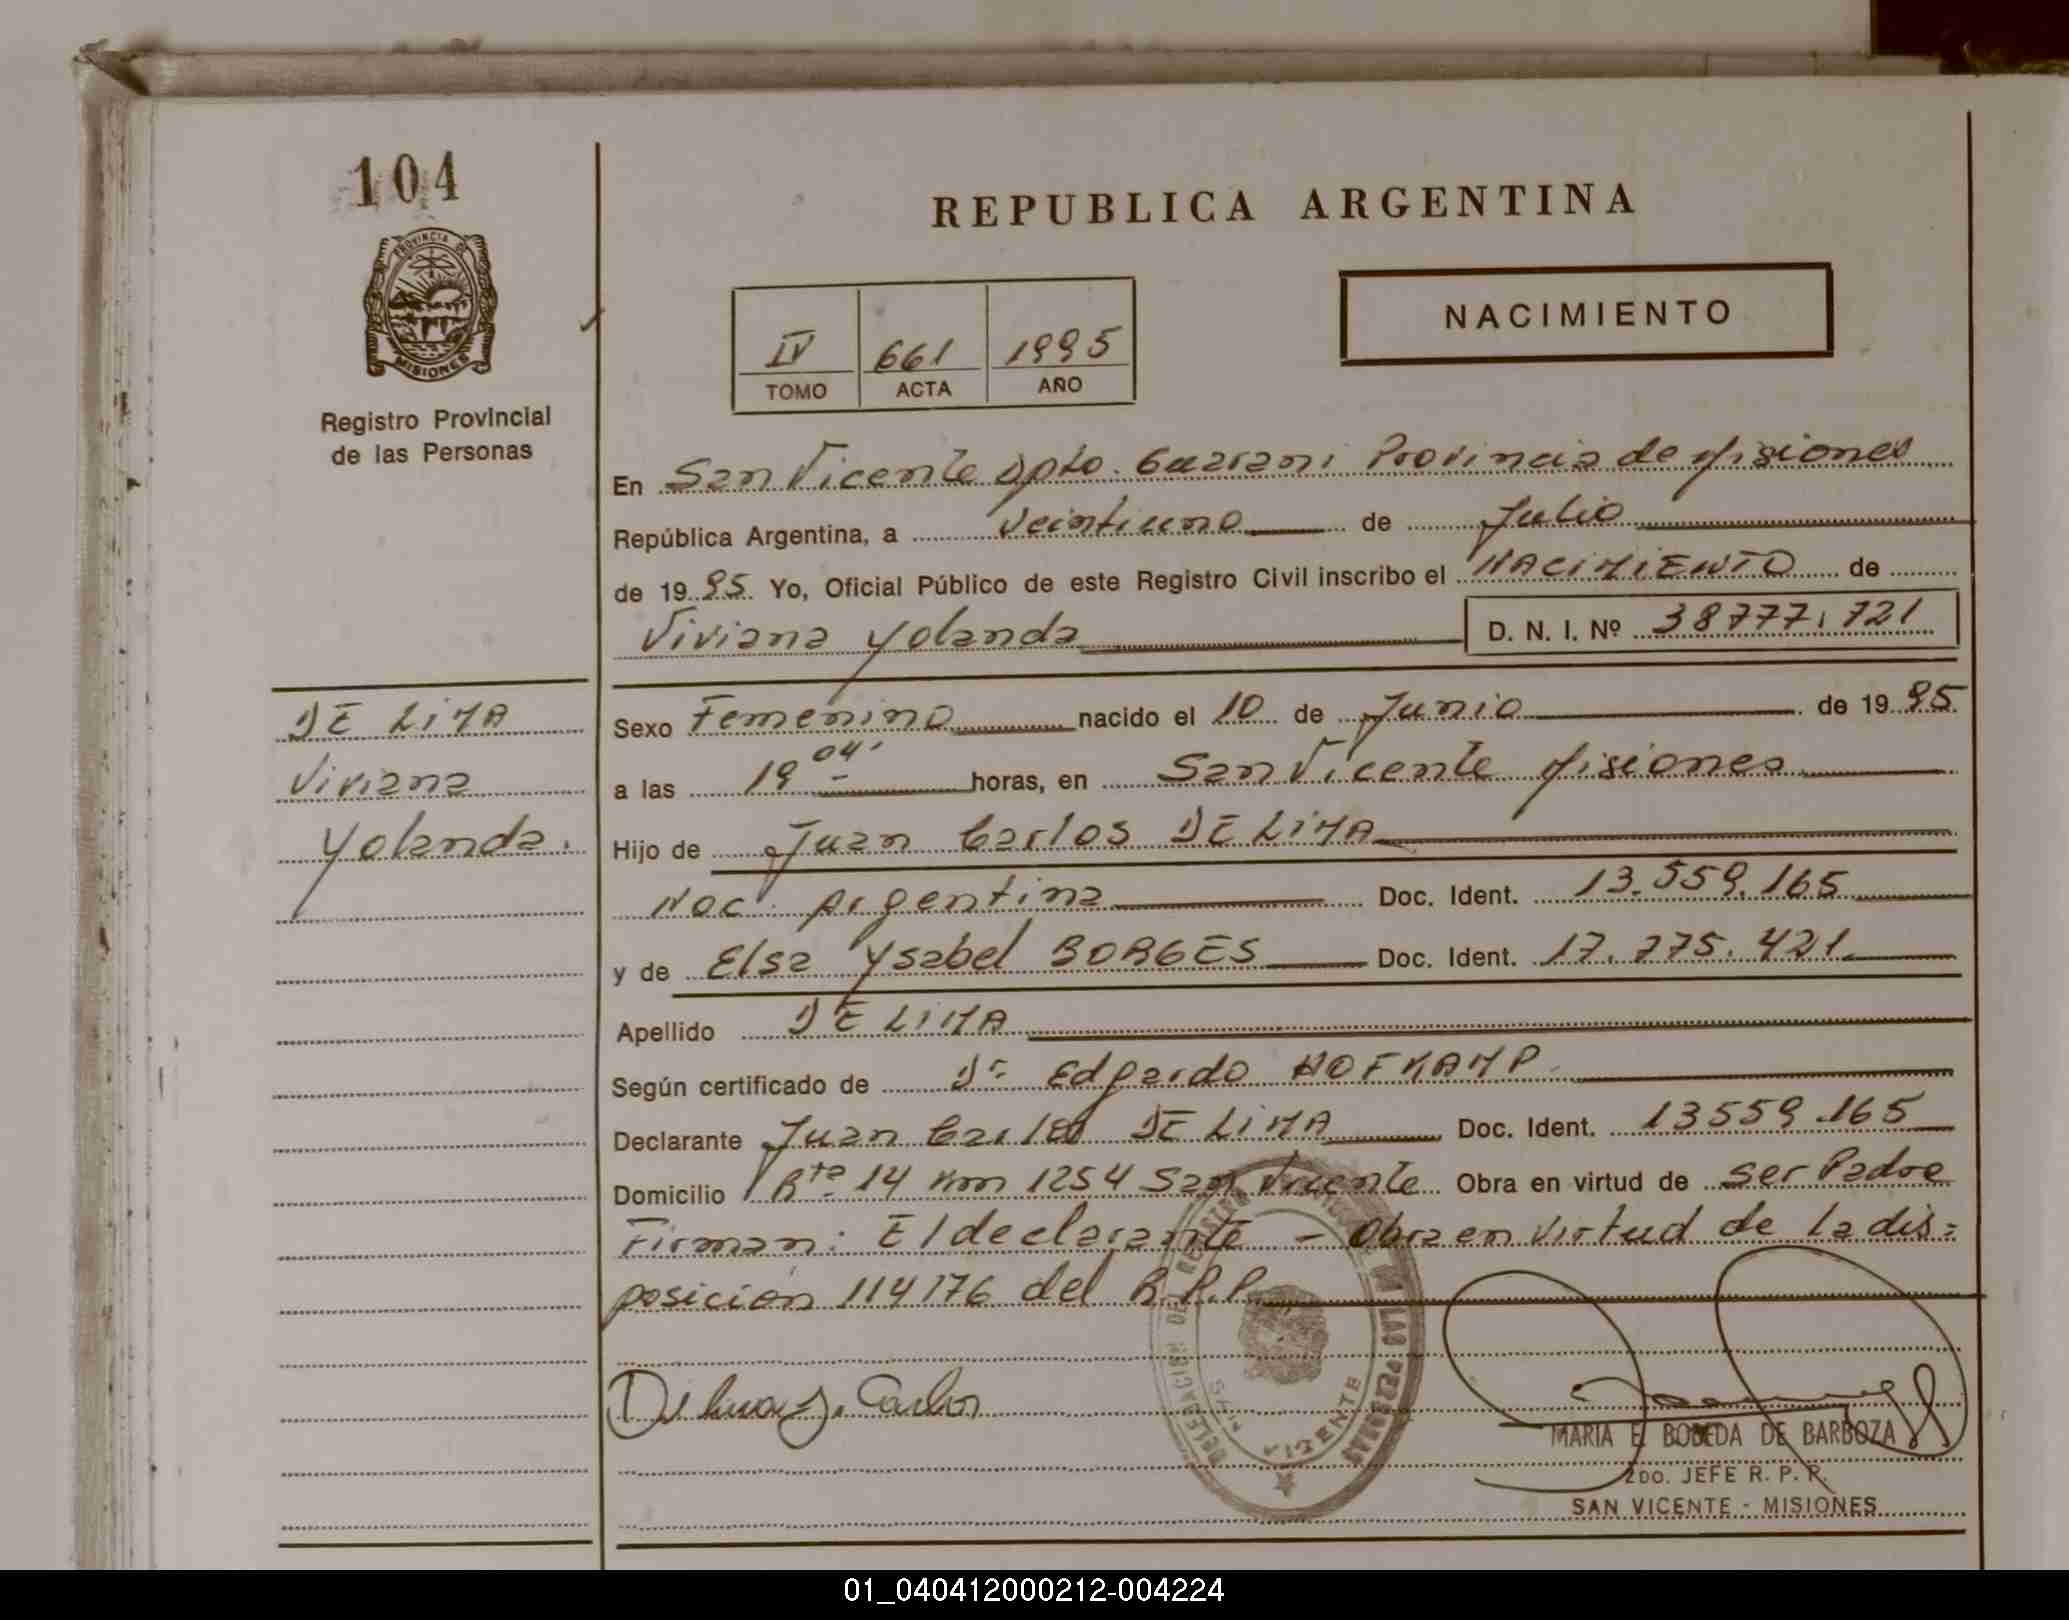 104
PROVINCIA DE
MISIONES
Registro Provincial
de las Personas
REPUBLICA ARGENTINA
IV 661 1995
TOMO ACTA AÑO
NACIMIENTO
En San Vicente Dpto. Guarani Provincia de Misiones
República Argentina, a veintiuno de Julio
de 1995 Yo, Oficial Público de este Registro Civil inscribo el NACIMIENTO de
Viviana Yolanda D. N. I. Nº 38777.721
DE LIMA
Viviana
Yolanda.
Sexo Femenino nacido el 10 de Junio de 1995
a las 19 04' horas, en San Vicente Misiones
Hijo de Juan Carlos DE LIMA
Nac. Argentina Doc. Ident. 13.559.165
y de Elsa Ysabel BORGES Doc. Ident. 17.775.421
Apellido DE LIMA
Según certificado de Dr Edgardo HOFKAMP
Declarante Juan Carlos DE LIMA Doc. Ident. 13559.165
Domicilio Rta 14 Km 1254 San Vicente Obra en virtud de ser Padre
Firman: El declarante - Obra en virtud de la dis=
posición 114176 del R.P.P.
De Lima J. Carlos
DELEGACION DEL REGISTRO DE LAS PERSONAS
SAN VICENTE
MARIA E. BOBEDA DE BARBOZA
2DO. JEFE R. P. P.
SAN VICENTE - MISIONES
01_040412000212-004224